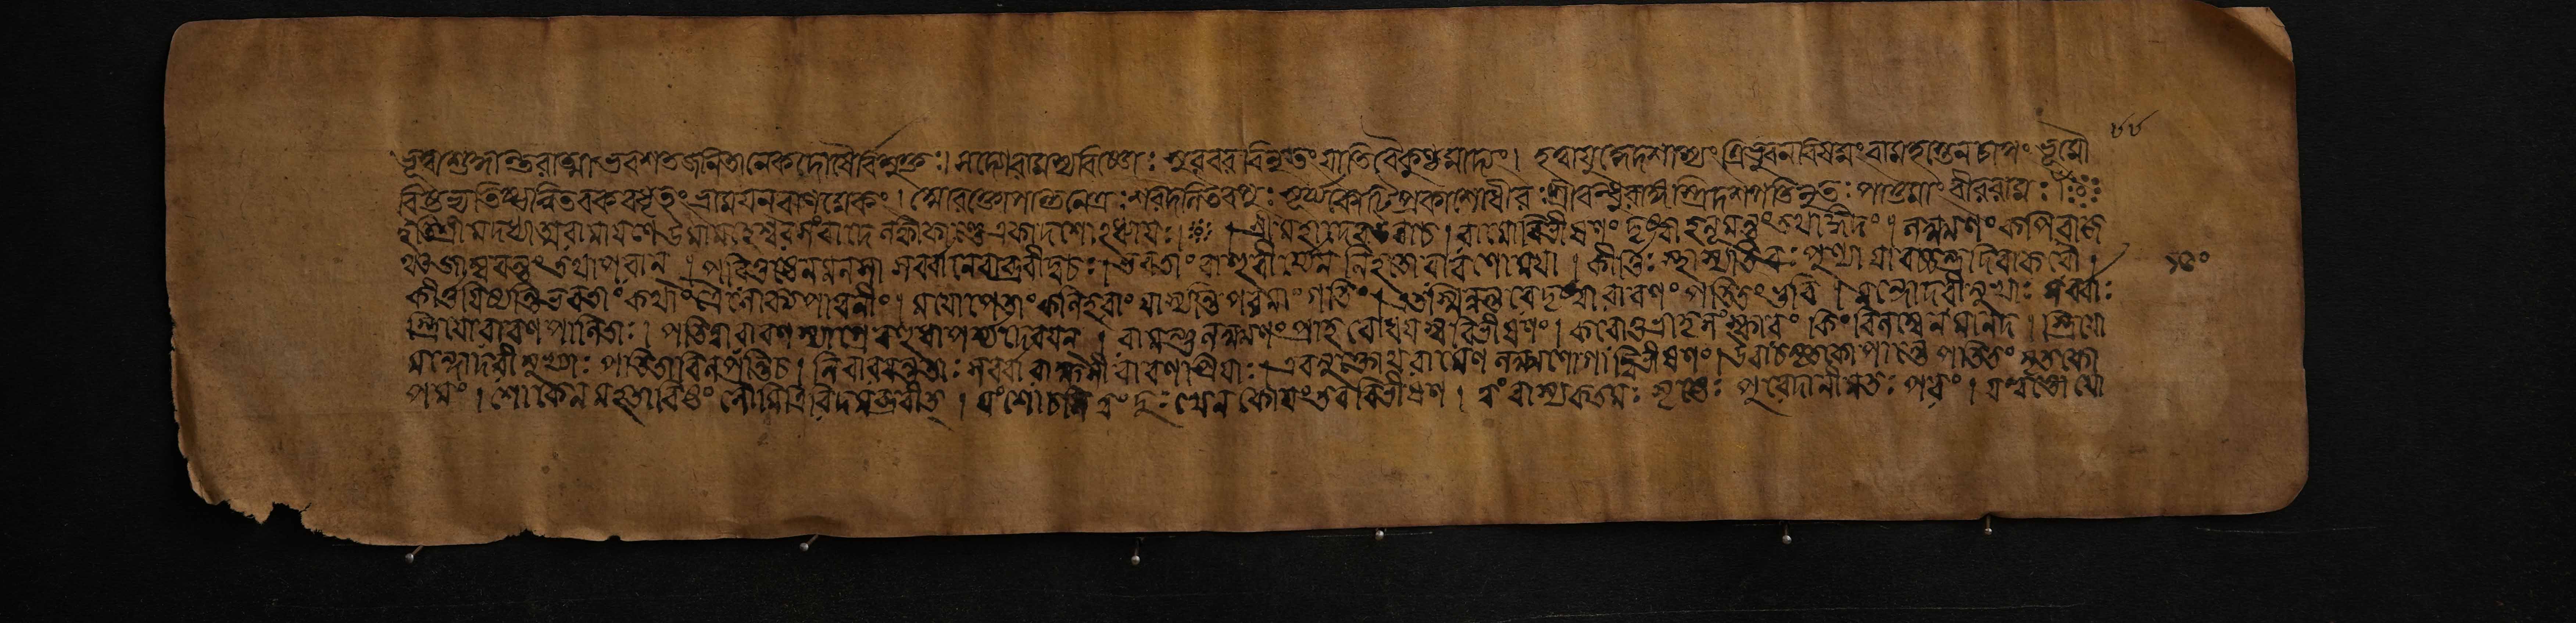 ৮৮
ভূত্বাশুদ্ধান্তরাত্মাভবশতজনিতানেকদোষৈর্বিমুক্তঃ। সদ্যোরামস্যবিষ্ণোঃ সুরবরবিনুতং যাতিবৈকুণ্ঠমাদ্যং। হত্বাযুদ্ধেদশাস্যং ত্রিভুবনবিষমং বামহস্তেনচাপং ভূমৌ
বিষ্টভ্যতিষ্ঠন্নিতরকরধৃতং ভ্রাময়নবাণমেকং। আরক্তোপান্তনেত্রঃ শরদলিতবপুঃ সূর্য্যকোটিপ্রকাশোবীরঃ শ্রীবন্ধুরাঙ্গস্ত্রিদশপতিনুতঃ পাতুমাং বীররামঃ
ইতিশ্রীমদধ্যাত্মরামায়ণেউমামহেশ্বরসংবাদেলঙ্কাকাণ্ডেএকাদশোঽধ্যায়ঃ। শ্রীমহাদেবউবাচ। রামোবিভীষণং দৃষ্ট্বাহনূমন্তং তথাঙ্গদং। লক্ষ্মণং কপিরাজ
ঞ্চজাম্ববন্তং তথাপরান্। পরিতুষ্টেনমনসা সর্ব্বানেবাব্রবীদ্বচঃ। ভবতাং বাহুবীর্য্যেন নিহতোরাবণোময়া। কীর্ত্তিঃ স্থাস্যতিবঃ পুণ্যা যাবচ্চন্দ্রদিবাকরৌ।
কীর্ত্তয়িষ্যন্তিভবতাং কথাং ত্রৈলোক্যপাবনীং। ময়োপেতাং কলিহরাং যাস্যন্তি পরমাং গতিং। এতস্মিন্নন্তরেদৃষ্ট্বারাবণং পতিতং ভুবি। মন্দোদরীমুখাঃ সর্ব্বাঃ
স্ত্রিয়োরাবণপালিতাঃ। পতিতারাবণস্যাগ্রে পর্য্যদেবয়ন। রামস্তুলক্ষ্মণং প্রাহ বোধয়স্ববিভীষণং। করোতুভ্রাতৃসংস্কারং কিং বিলম্বেনমানদ। স্ত্রিয়ো
মন্দোদরীমুখ্যাঃ পতিতাবিলপন্তিচ। নিবারয়তুতাঃ সর্ব্বারাক্ষসীরাবণপ্রিয়াঃ। এবমুক্তোথরামেণ লক্ষ্মণোগাদ্বিভীষণং। উবাচমৃতকোপান্তে পতিতং মৃতকো
পমং। শোকেনমহতাবিষ্টং সৌমিত্রিরিদমব্রবীত্। যং শোচসিত্বং দুঃখেনকোয়ং তববিভীষণ। ত্বং বাস্যকতমঃ সৃষ্টেঃ পুরেদানীমতঃ পরং। যদ্বত্তোয়ৌ